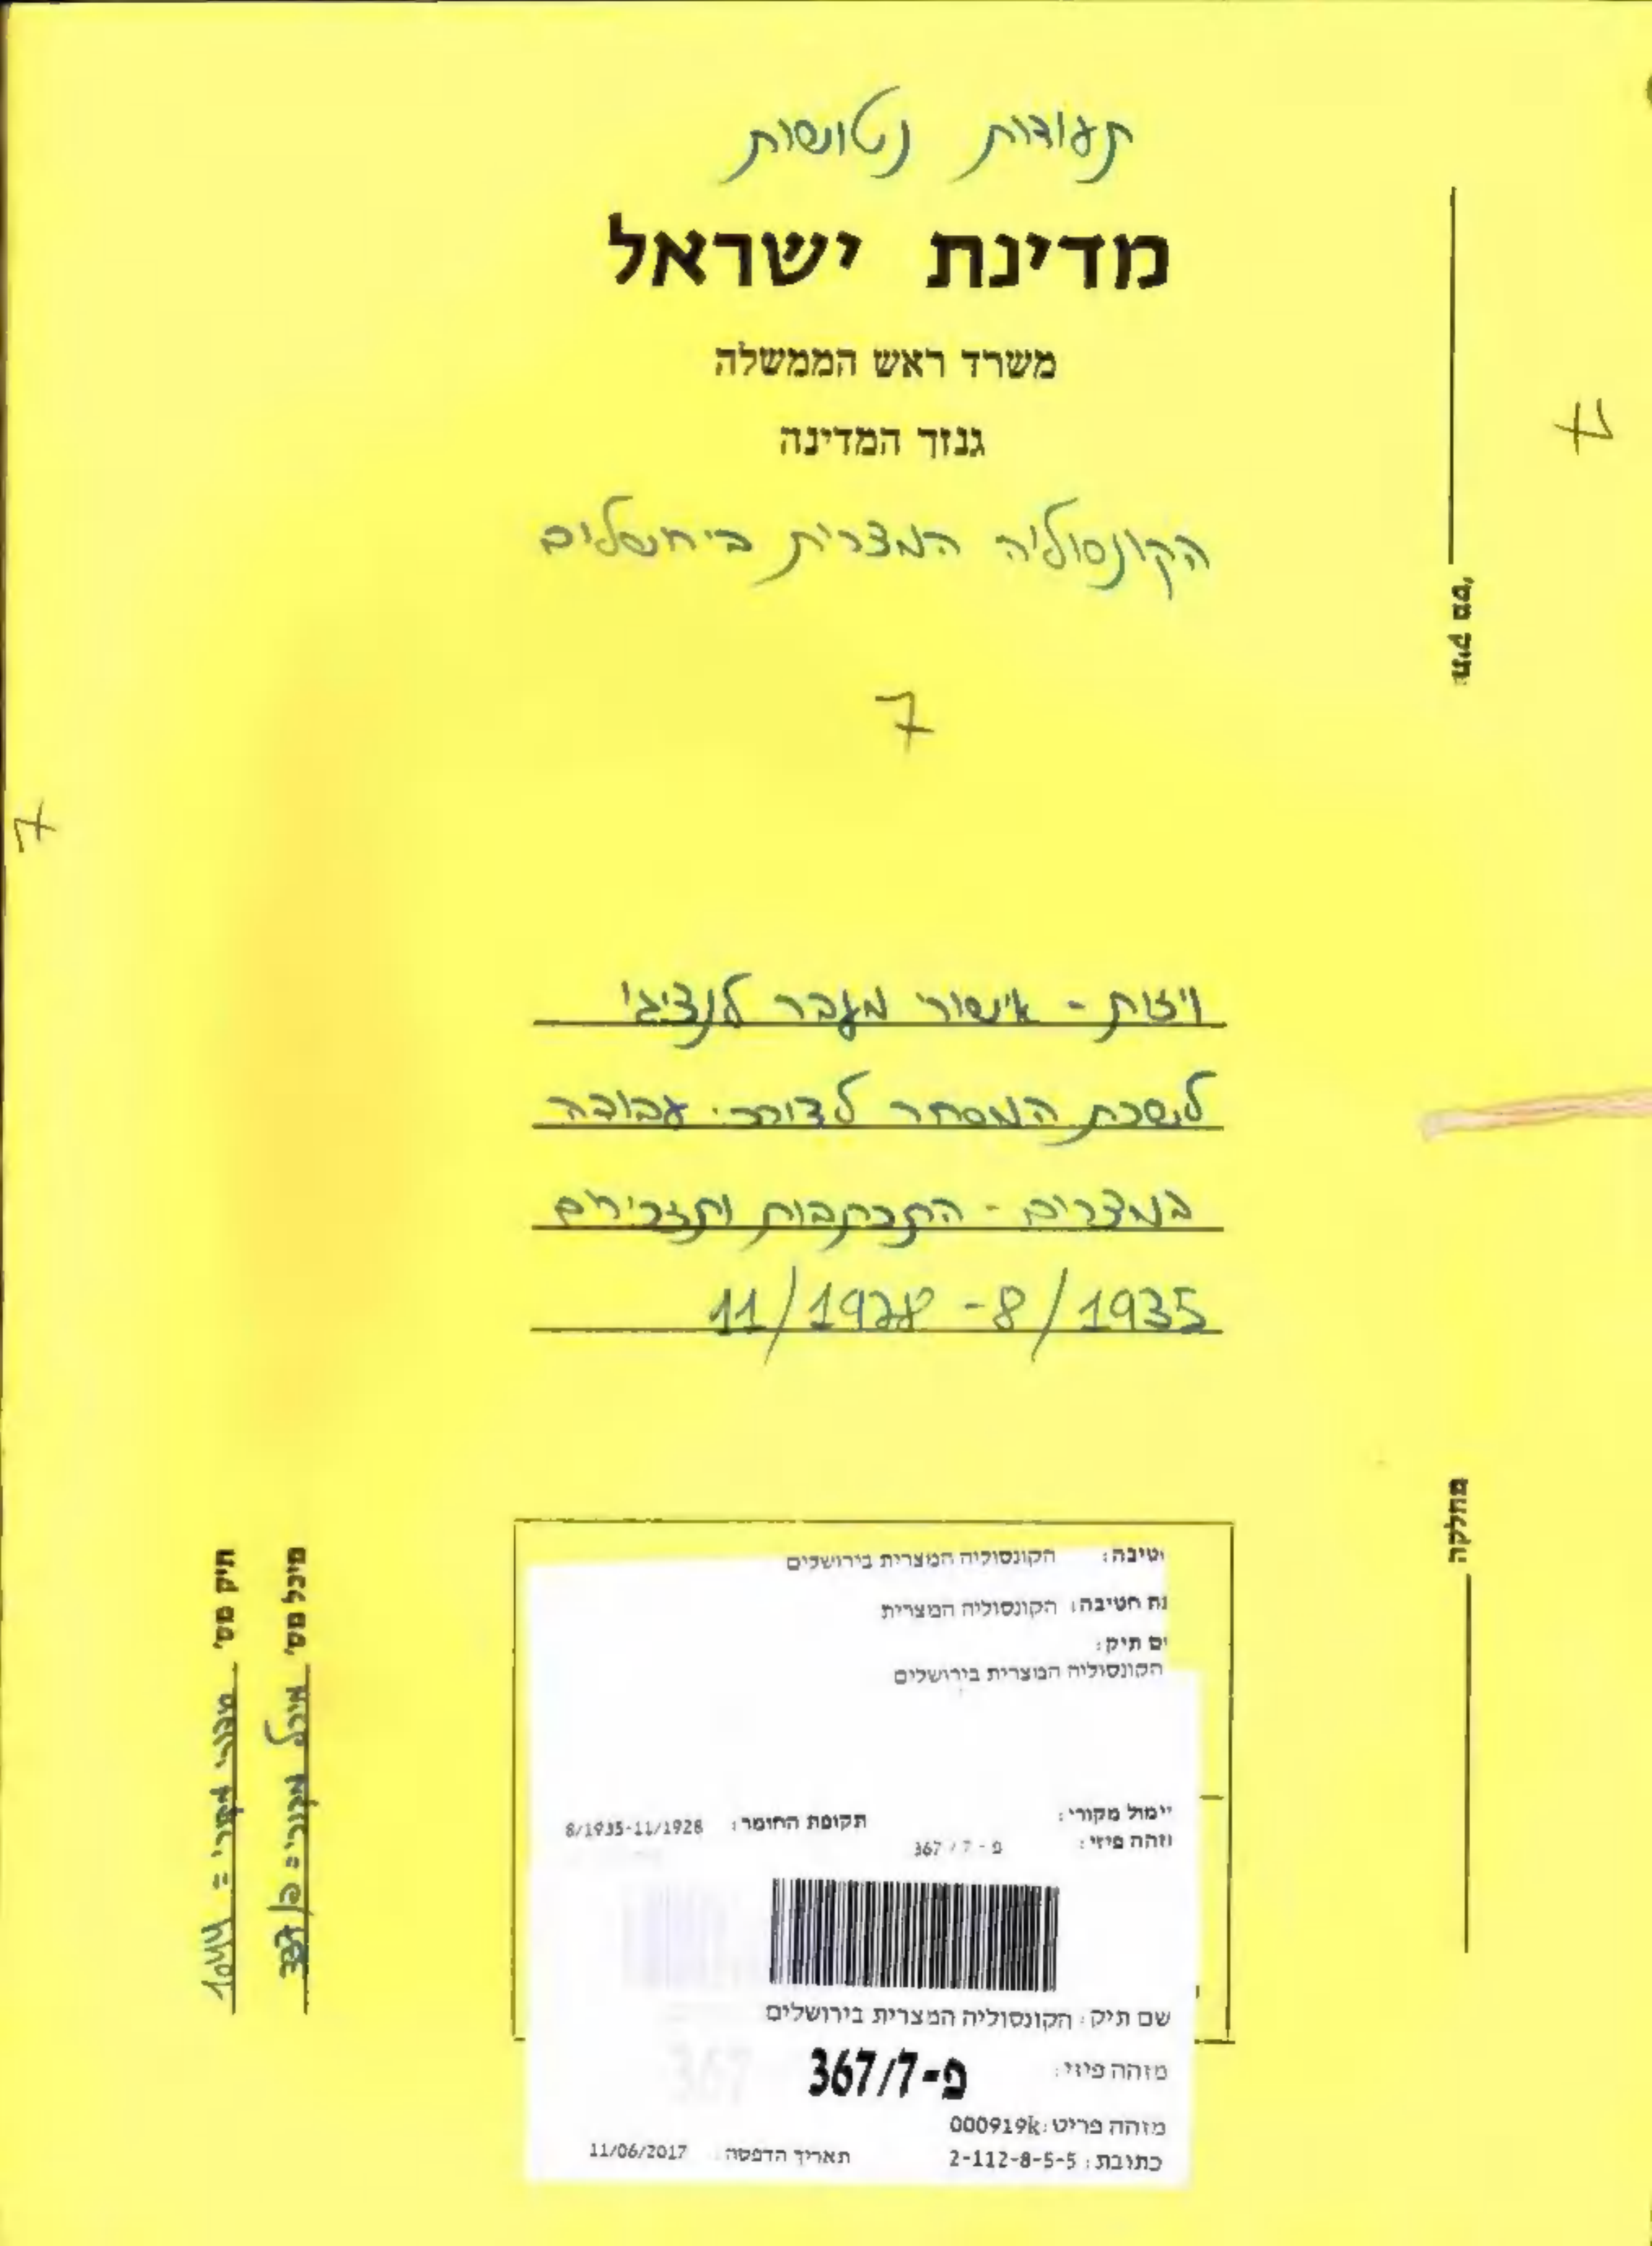 תעודות נטושות
מדינת ישראל
משרד ראש הממשלה
גנזך המדינה
הקונסוליה המצרית בירושלים
7
ויזות - אישורי מעבר לנציגי
לשכת המסחר לצורכי עבודה
במצרים - התכתבות ותזכירים
11/1928 - 8/1935
תיק מס'
מחלקה
תיק מס' מקורי = 1044
מיכל מס'
טיבה: הקונסוליה המצרית בירושלים
ת חטיבה: הקונסוליה המצרית
ם תיק:
הקונסוליה המצרית בירושלים
ימול מקורי:
תקופת החומר: 8/1935-11/1928
זהה פיזי: פ - 7 / 367
שם תיק: הקונסוליה המצרית בירושלים
מזהה פיזי: פ-367/7
מזהה פריט: 000919k
כתובת: 2-112-8-5-5
תאריך הדפסה: 11/06/2017